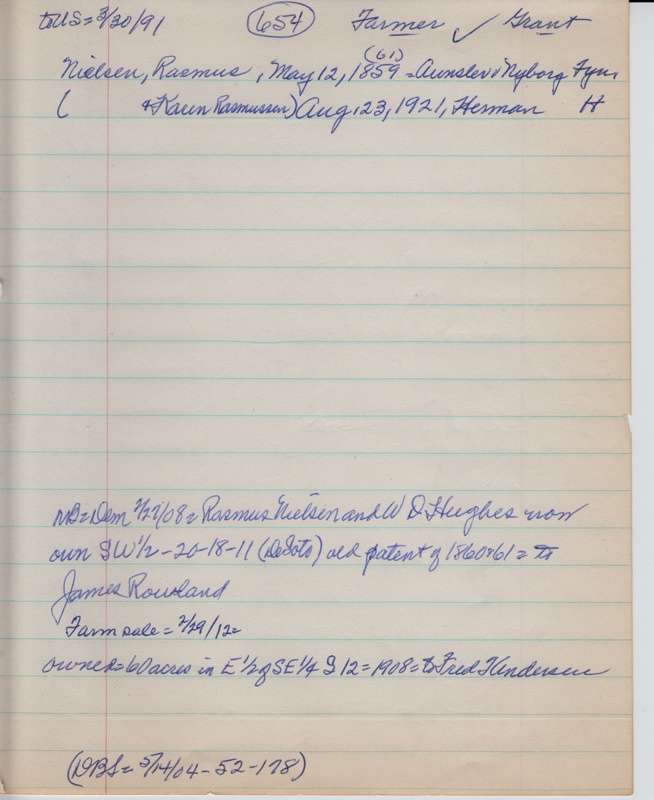 to US = 3/30/91 654 Farmer ✓ Grant
(61)
Nielsen, Rasmus, May 12, 1859 = Aunslev i Nyborg Fyn,
( & Karen Rasmussen) Aug. 23, 1921, Herman H
NB = Dem 2/27/08 = Rasmus Nielsen and W D Hughes now
own SW 1/2 - 20-18-11 (DeSoto) old patent of 1860 & 61 = to
James Rowland
Farm sale = 2/29/12 =
owned = 60 acres in E 1/2 of SE 1/4 S 12 = 1908 = to Fred
(DBS = 3/14/04 - 52 - 178)